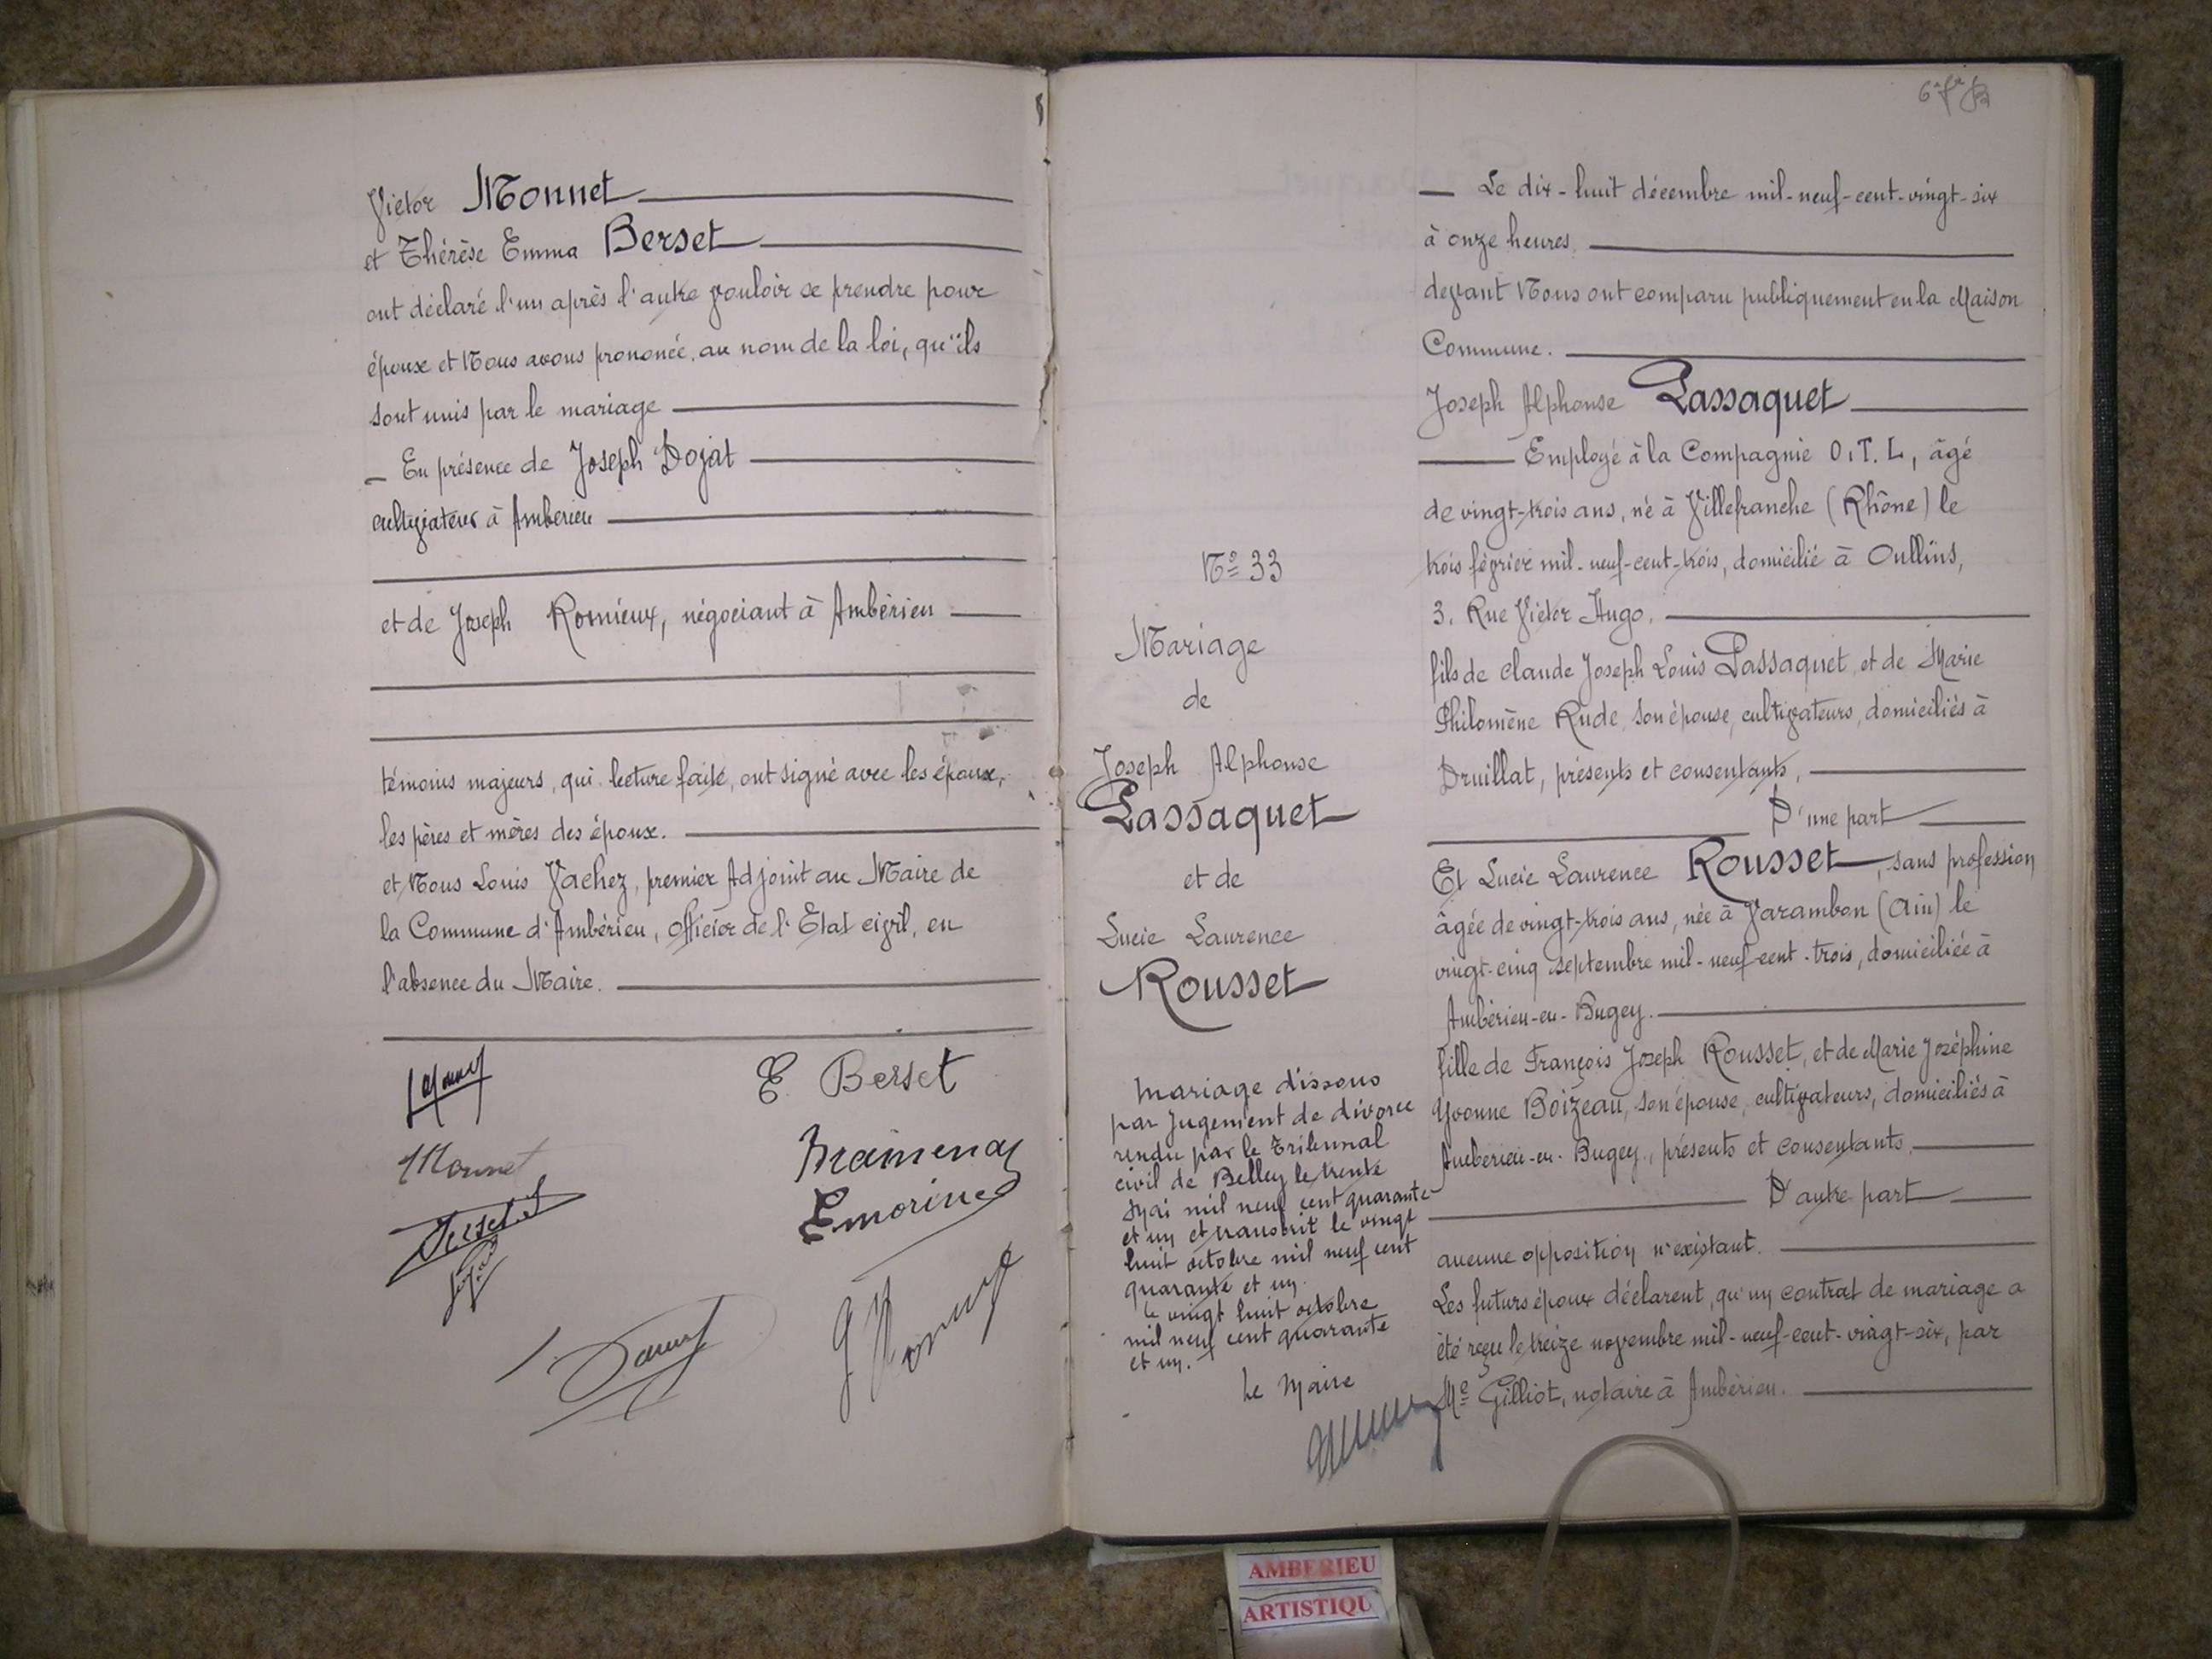 Victor Monnet
et Thérèse Emma Berset
ont déclaré l'un après l'autre vouloir se prendre pour
époux et Nous avons prononcé, au nom de la loi, qu'ils
sont unis par le mariage
En présence de Joseph Dojat
cultivateur à Ambérieu
et de Joseph Romieux, négociant à Ambérieu
témoins majeurs, qui lecture faite, ont signé avec les époux,
les pères et mères des époux.
et Nous Louis Vachez, premier Adjoint au Maire de
la Commune d'Ambérieu, Officier de l'Etat civil, en
l'absence du Maire.
E. Berset
Monnet
N° 33
Mariage
de
Joseph Alphonse
Passaquet
et de
Lucie Laurence
Rousset
Mariage dissous
par Jugement de divorce
rendu par le Tribunal
civil de Belley le trente
Mai mil neuf cent quarante
et un et transcrit le vingt
huit octobre mil neuf cent
quarante et un.
le vingt huit octobre
mil neuf cent quarante
et un.
Le Maire
Le dix-huit décembre mil-neuf-cent-vingt-six
à onze heures,
devant Nous ont comparu publiquement en la Maison
Commune.
Joseph Alphonse Passaquet
Employé à la Compagnie O.T.L, âgé
de vingt-trois ans, né à Villefranche (Rhône) le
trois février mil-neuf-cent-trois, domicilié à Oullins,
3. Rue Victor Hugo,
fils de Claude Joseph Louis Passaquet, et de Marie
Philomène Rude, son épouse, cultivateurs, domiciliés à
Druillat, présents et consentants,
D'une part
Et Lucie Laurence Rousset, sans profession
âgée de vingt-trois ans, née à Varambon (Ain) le
vingt-cinq septembre mil-neuf-cent-trois, domiciliée à
Ambérieu-en-Bugey.
fille de François Joseph Rousset, et de Marie Joséphine
Yvonne Boizeau, son épouse, cultivateurs, domiciliés à
Ambérieu-en-Bugey, présents et consentants,
D'autre part
aucune opposition n'existant.
Les futurs époux déclarent, qu'un contrat de mariage a
été reçu le treize novembre mil-neuf-cent-vingt-six, par
Me Gilliot, notaire à Ambérieu.
AMBERIEU
ARTISTIQU